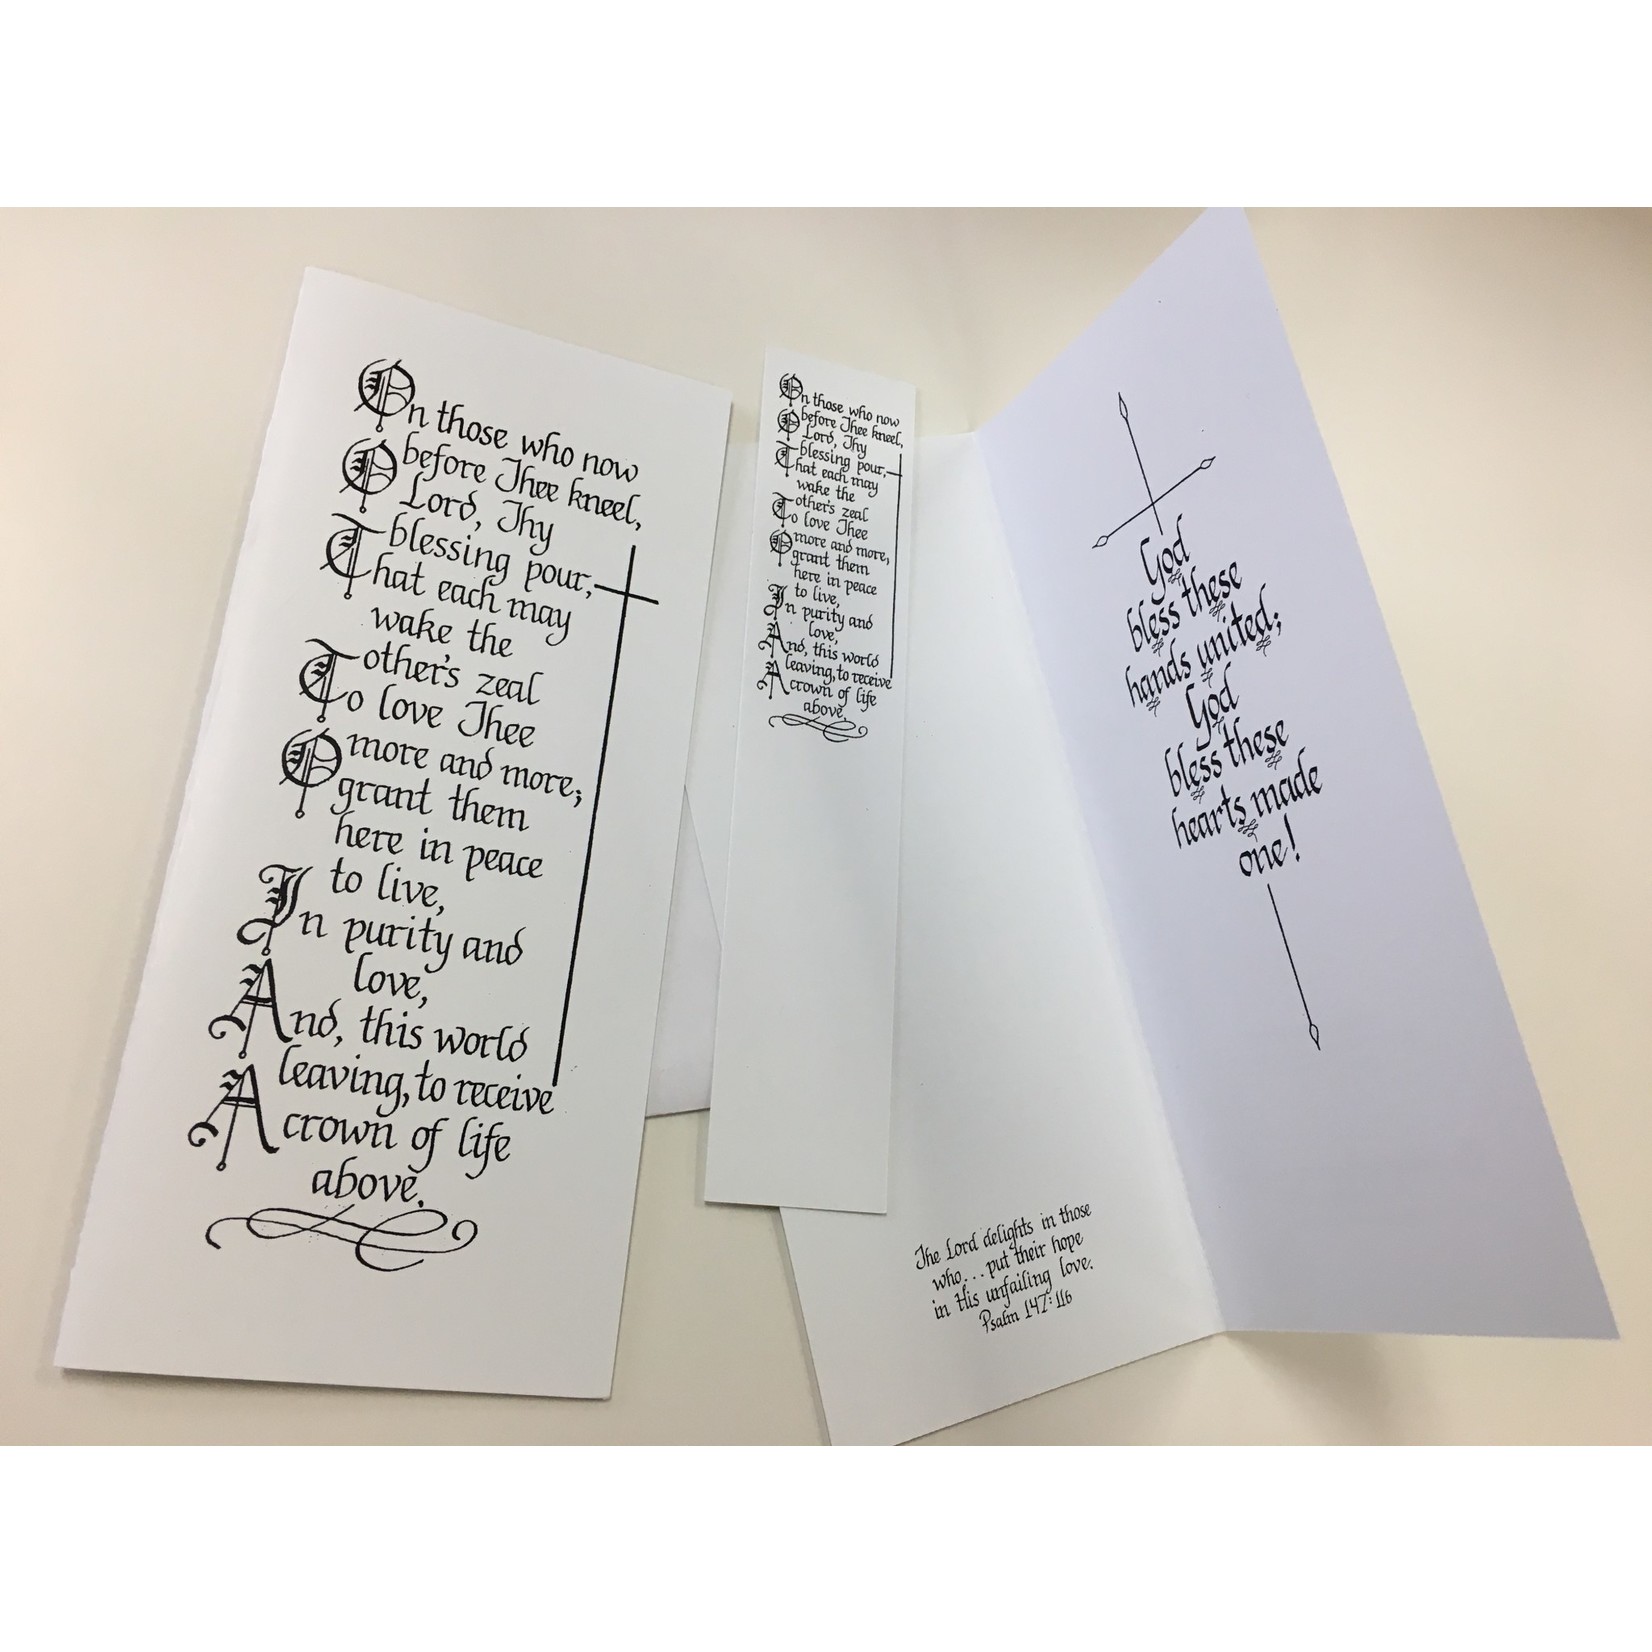 On those who now
before Thee kneel,
O Lord, Thy
blessing pour,
That each may
wake the
other's zeal
To love Thee
more and more;
O grant them
here in peace
to live,
In purity and
love,
And, this world
leaving, to receive
A crown of life
above.
On those who now
before Thee kneel,
O Lord, Thy
blessing pour,
That each may
wake the
other's zeal
To love Thee
more and more;
O grant them
here in peace
to live,
In purity and
love,
And, this world
leaving, to receive
A crown of life
above.
The Lord delights in those
who... put their hope
in His unfailing love.
Psalm 147:11b
God
bless these
hands united;
God
bless these
hearts made
one!